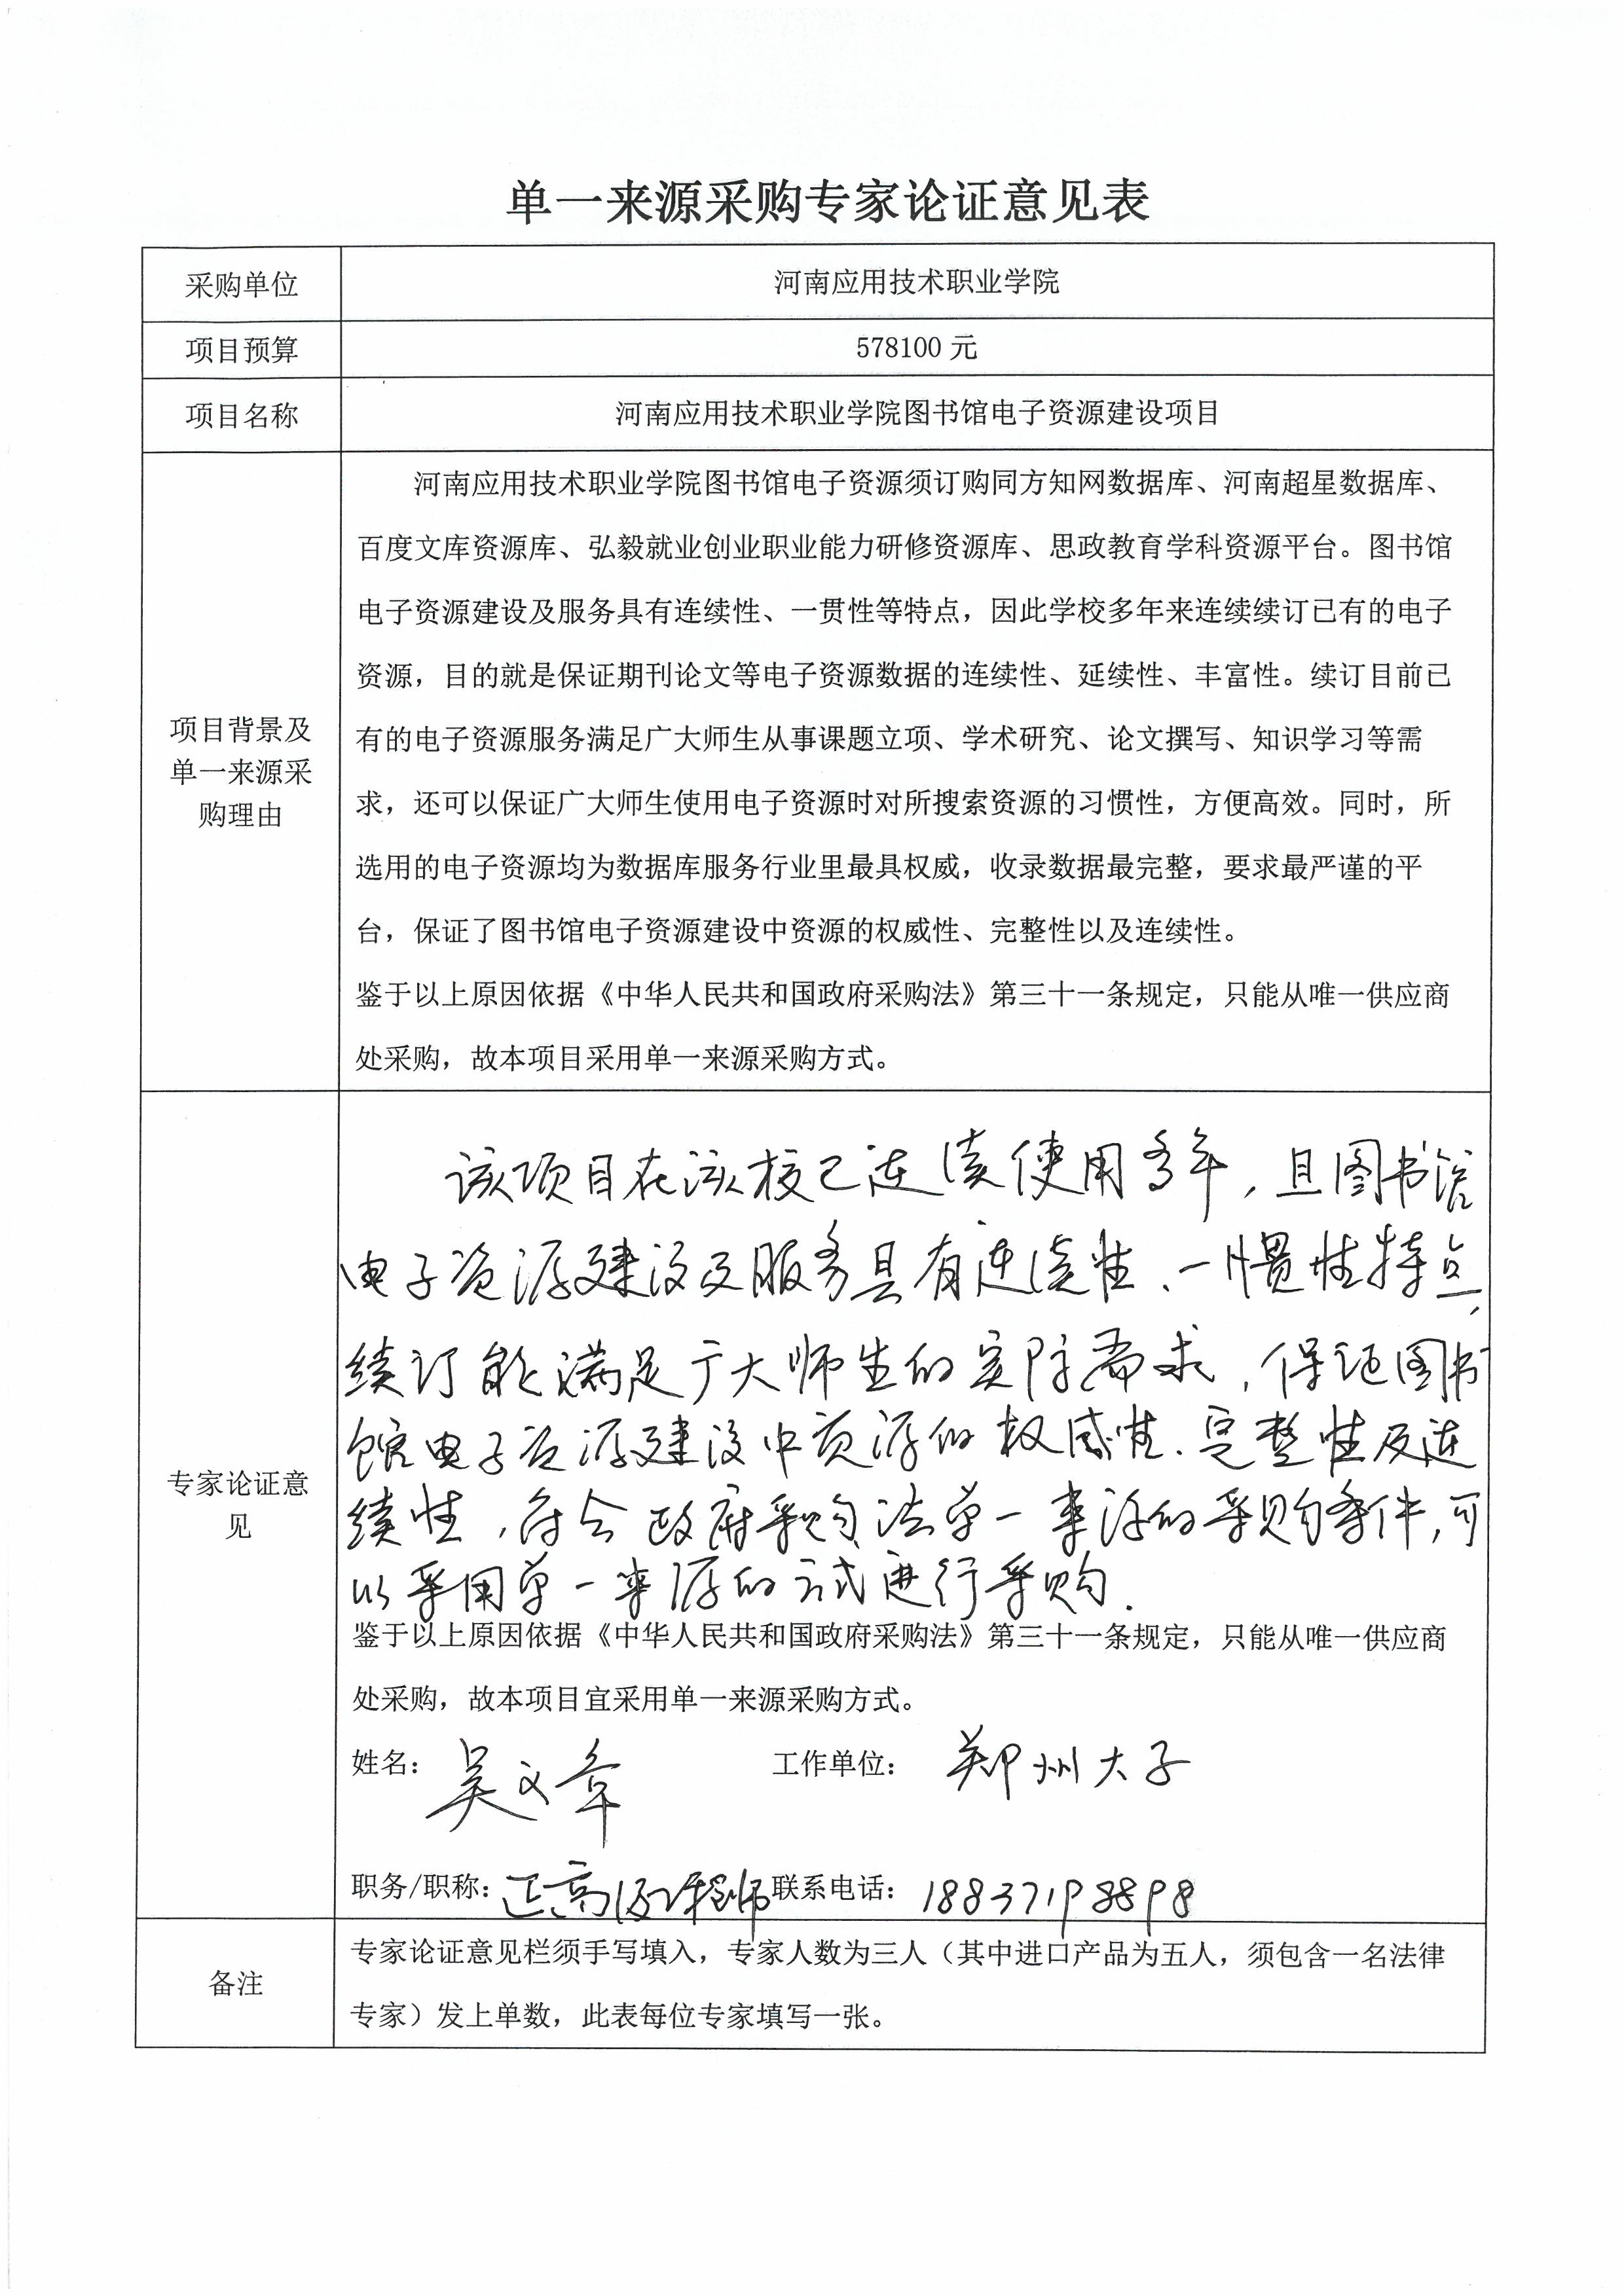 单一来源采购专家论证意见表
采购单位
河南应用技术职业学院
项目预算
578100 元
项目名称
河南应用技术职业学院图书馆电子资源建设项目
项目背景及
单一来源采
购理由
河南应用技术职业学院图书馆电子资源须订购同方知网数据库、河南超星数据库、
百度文库资源库、弘毅就业创业职业能力研修资源库、思政教育学科资源平台。图书馆
电子资源建设及服务具有连续性、一贯性等特点，因此学校多年来连续续订已有的电子
资源，目的就是保证期刊论文等电子资源数据的连续性、延续性、丰富性。续订目前已
有的电子资源服务满足广大师生从事课题立项、学术研究、论文撰写、知识学习等需
求，还可以保证广大师生使用电子资源时对所搜索资源的习惯性，方便高效。同时，所
选用的电子资源均为数据库服务行业里最具权威，收录数据最完整，要求最严谨的平
台，保证了图书馆电子资源建设中资源的权威性、完整性以及连续性。
鉴于以上原因依据《中华人民共和国政府采购法》第三十一条规定，只能从唯一供应商
处采购，故本项目采用单一来源采购方式。
专家论证意
见
该项目在该校已连续使用多年，且图书馆
电子资源建设及服务具有连续性、一惯性特点，
续订能满足广大师生的实际需求，保证图书
馆电子资源建设中资源的权威性、完整性及连
续性，符合政府采购法单一来源的采购条件，可
以采用单一来源的方式进行采购.
鉴于以上原因依据《中华人民共和国政府采购法》第三十一条规定，只能从唯一供应商
处采购，故本项目宜采用单一来源采购方式。
姓名： 吴文章 工作单位： 郑州大学
职务/职称： 正高级工程师 联系电话： 18837198898
备注
专家论证意见栏须手写填入，专家人数为三人（其中进口产品为五人，须包含一名法律
专家）发上单数，此表每位专家填写一张。